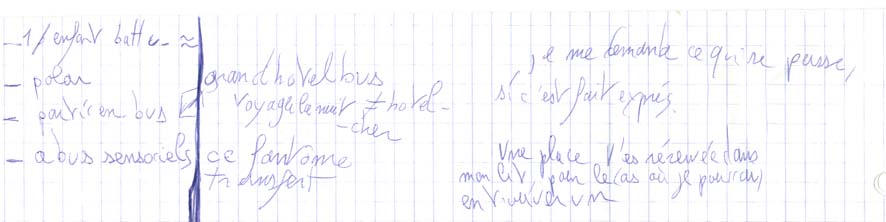 - 1/ enfant battu - ≈
- polar
- partir en bus
- abus sensoriels
grand hotel bus
voyage la nuit ≠ hotel -
- cher
ce fantôme
transfert
je me demande ce qui se passe,
si c'est fait exprés.
Une place t'es réservée dans
mon lit pour le cas où je pourrai
en un